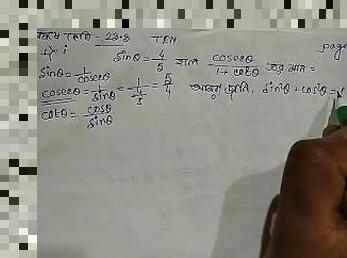 23.3 TEN
page
sinθ = 4/5 হলে cosecθ/1+cotθ এর মান =
sinθ = 1/cosecθ
cosecθ = 1/sinθ = 1/4/5 = 5/4 আমরা জানি, sin²θ + cos²θ =
cotθ = cosθ/sinθ